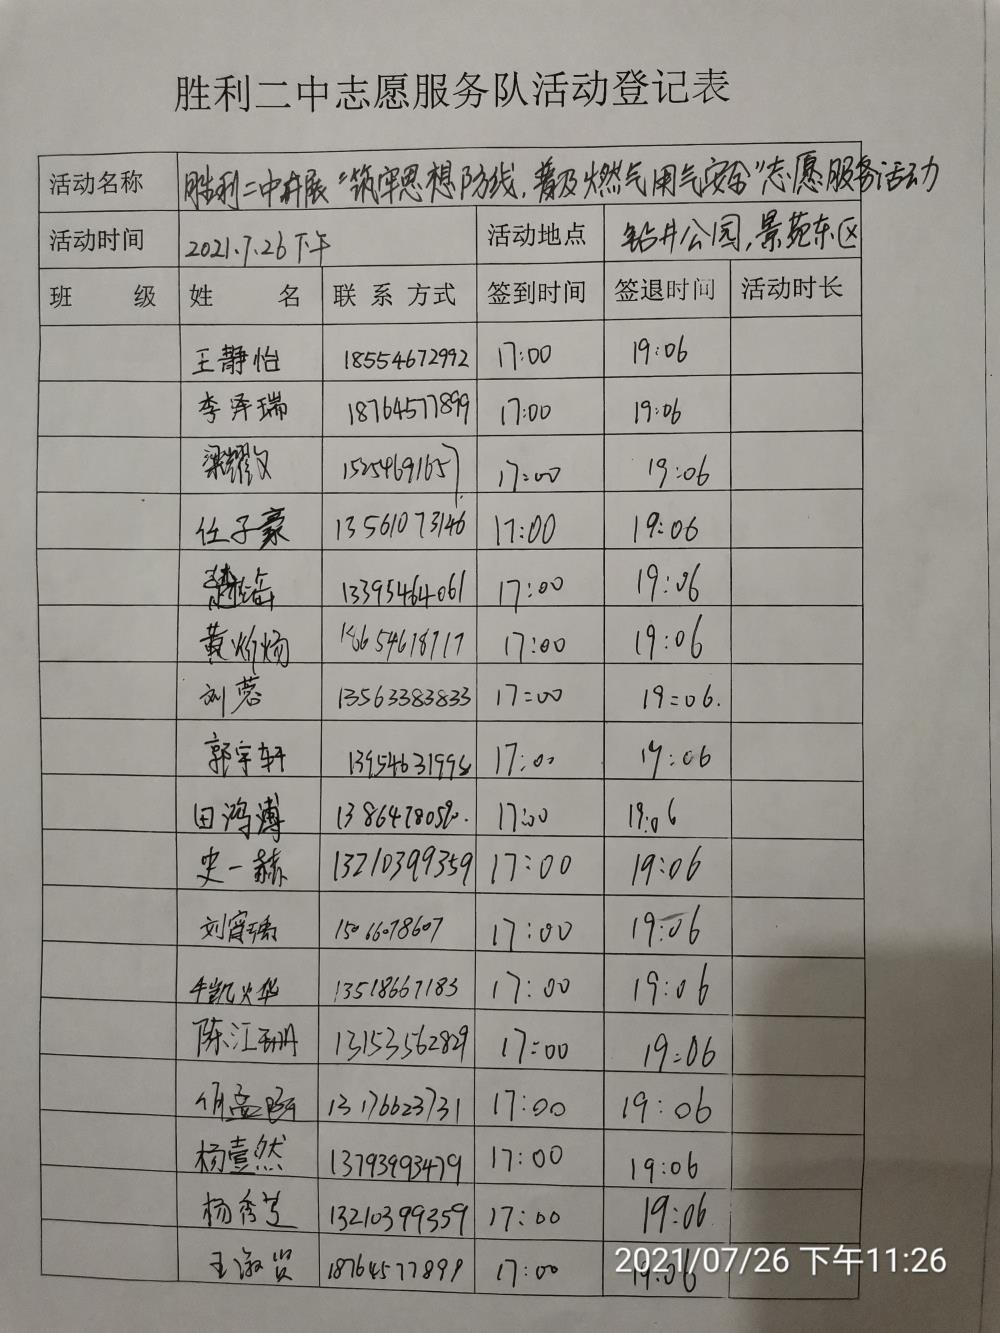 胜利二中志愿服务队活动登记表
活动名称 胜利二中开展"筑牢思想防线,普及燃气用气安全"志愿服务活动
活动时间 2021.7.26下午 活动地点 钻井公园,景苑东区
班 级 姓 名 联系方式 签到时间 签退时间 活动时长
王静怡 18554672992 17:00 19:06
李泽瑞 18764577899 17:00 19:06
梁耀文 15254691657 17:00 19:06
任子豪 13561073146 17:00 19:06
13395464061 17:00 19:06
黄 18654618717 17:00 19:06
刘蕊 13563383833 17:00 19:06.
郭宇轩 17:00 19:06
田鸿溥 17:00 19:06
史一赫 13210399359 17:00 19:06
刘 17:00 19:06
13518667183 17:00 19:06
陈江珊 13153562829 17:00 19:06
13176623731 17:00 19:06
杨壹然 13793993479 17:00 19:06
杨秀芝 13210399359 17:00 19:06
王淑贤 18764577899 17:00 19:06
2021/07/26 下午11:26